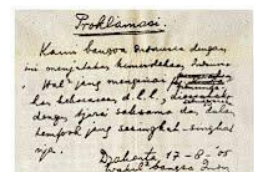 Proklamasi.
Kami bangsa Indonesia dengan
ini menjatakan kemerdekaan Indonesia
Hal² jang mengenai
d.l.l.,
dengan tjara saksama dan dalam
tempoh jang sesingkat-singkat
nja.
Djakarta, 17-8-'05
Wakil² bangsa Indon